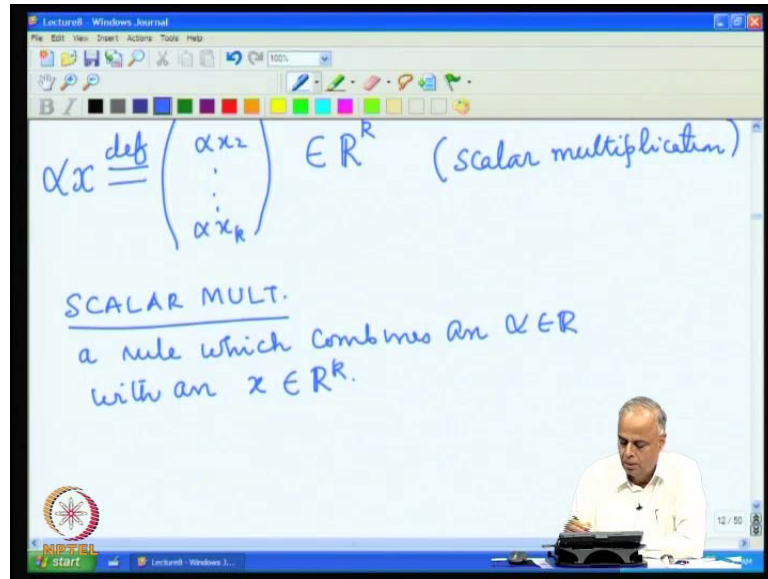 Lecture8 - Windows Journal
File Edit View Insert Actions Tools Help
100%
B I
αx def= ( αx₂ . . . αx_k ) ∈ ℝᵏ (scalar multiplication)
SCALAR MULT.
a rule which combines an α ∈ ℝ
with an x ∈ ℝᵏ.
12 / 50
NPTEL
start Lecture8 - Windows J...
AM